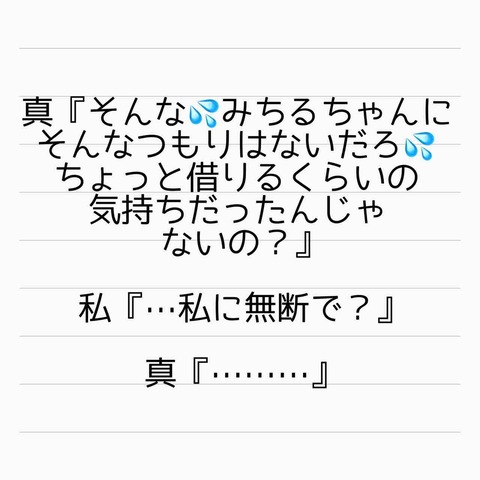 真『そんな💦みちるちゃんに
そんなつもりはないだろ💦
ちょっと借りるくらいの
気持ちだったんじゃ
ないの？』
私『…私に無断で？』
真『………』